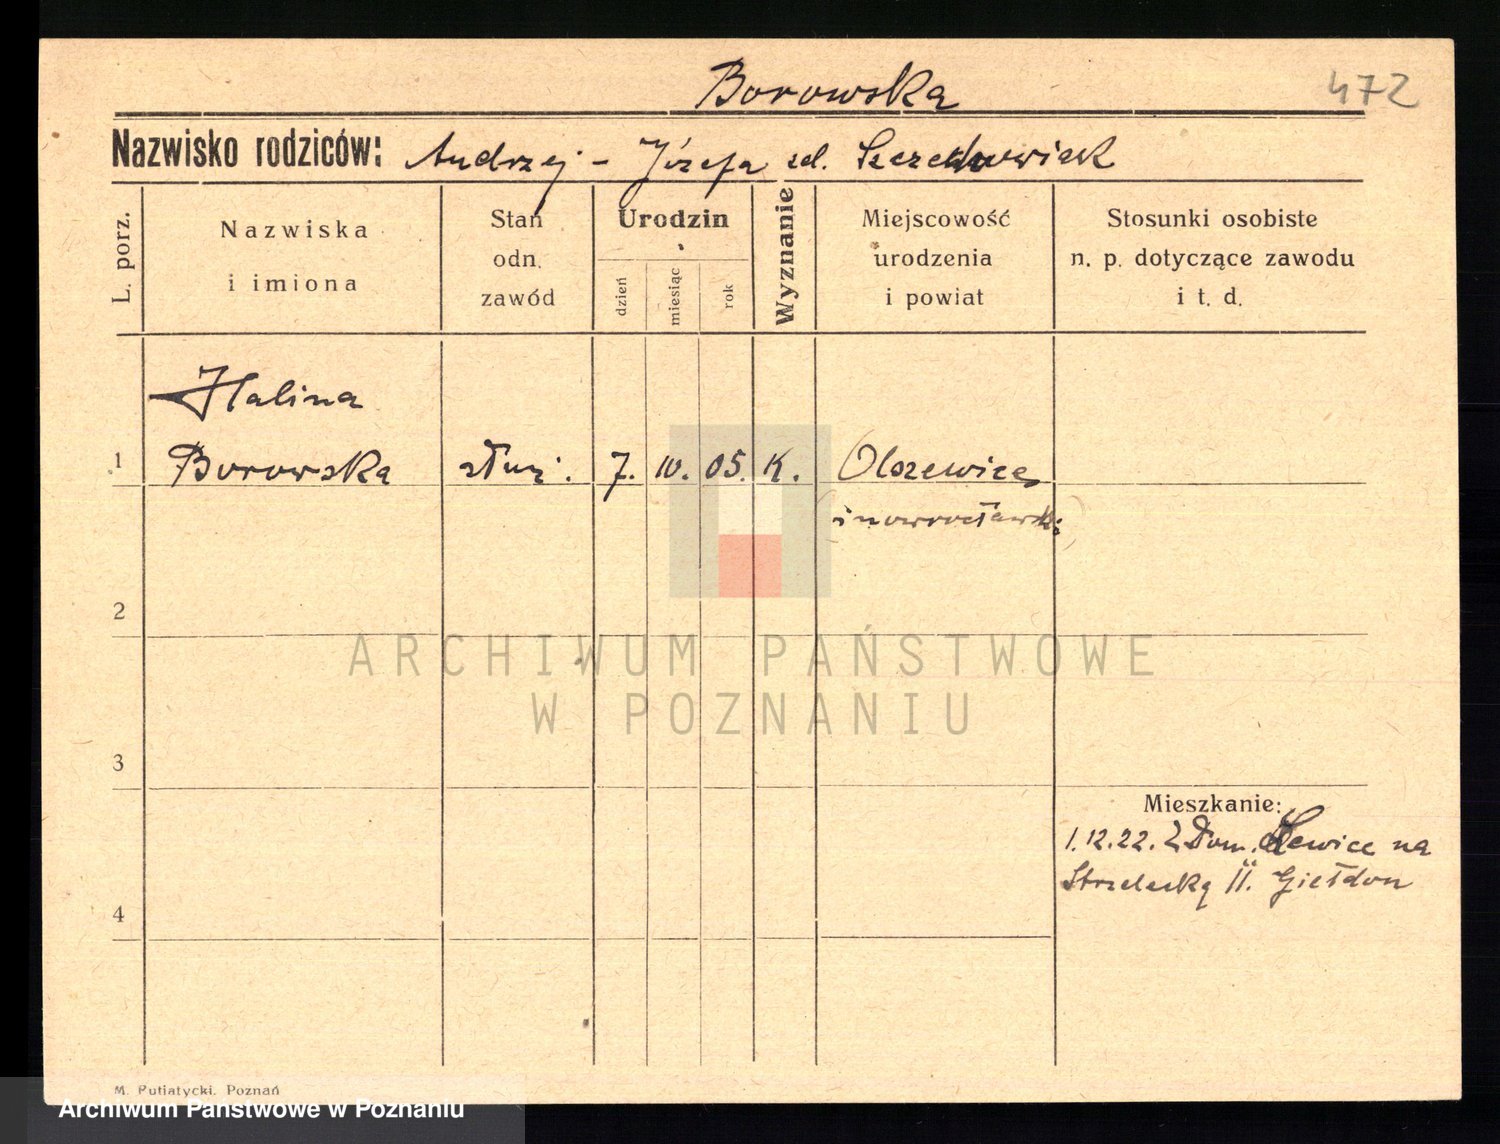 Borowska
472
Nazwisko rodziców: Andrzej - Józefa
L. porz.
Nazwiska
i imiona
Stan
odn.
zawód
Urodzin
dzień
miesiąc
rok
Wyznanie
Miejscowość
urodzenia
i powiat
Stosunki osobiste
n. p. dotyczące zawodu
i t. d.
Halina
1 Borowska służ. 7. 10. 05. K. Olszewice
inowrocławski
2
ARCHIWUM PAŃSTWOWE
W POZNANIU
3
4
Mieszkanie:
1.12.22. Z Dom. na
Strzelecką
M. Putiatycki, Poznań
Archiwum Państwowe w Poznaniu